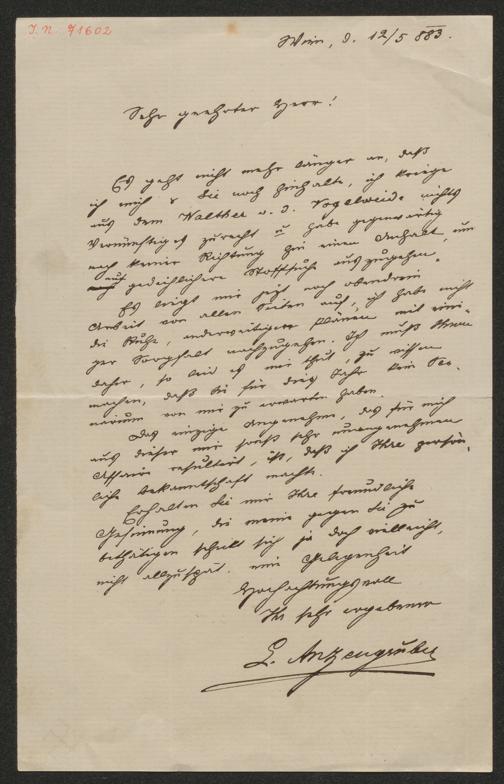 J. N. 71602
Wien, d. 12/5 883.
Sehr geehrter Herr!
Es geht nicht mehr länger an, daß
ich mich & Sie noch hinhalte, ich kriege
aus dem Walther v. d. Vogelweide nichts
Vernünftiges zurecht u habe gegenwärtig
nach keiner Richtung hin einen Anhalt, um
auf gedeihlichere Stoffsuche auszugehen.
Es liegt mir jetzt noch obendrein
Arbeit von allen Seiten auf, ich habe nicht
die Ruhe, anderweitigen Plänen mit eini-
ger Sorgfalt nachzugehen. Ich muß Ihnen
daher, so leid es mir thut, zu wissen
machen, daß Sie für dies Jahr kein Sce-
narium von mir zu erwarten haben.
Das einzige Angenehme, das für mich
aus dieser mir sonst sehr unangenehmen
Affaire resultiert, ist, daß ich Ihre persön-
liche Bekanntschaft machte.
Erhalten Sie mir Ihre freundliche
Gesinnung, die meine gegen Sie zu
bethätigen schickt sich ja doch vielleicht,
nicht allzuspät. eine Gelegenheit
Hochachtungsvoll
Ihr sehr ergebener
L. Anzengruber